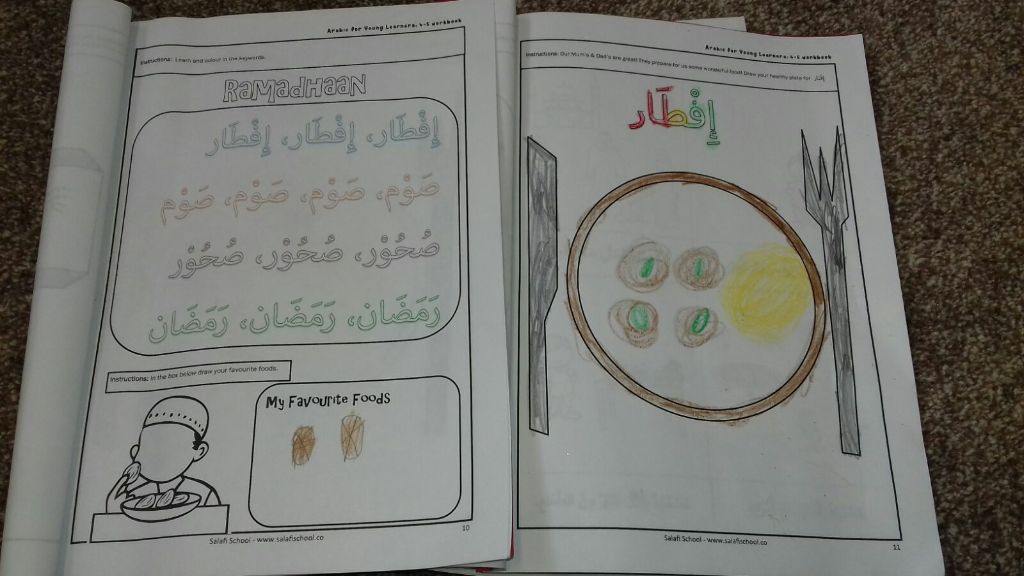 Arabic for Young Learners: 4-5 workbook
Instructions: Learn and colour in the keywords.
RaMadHaaN
إِفْطَار، إِفْطَار، إِفْطَار
صَوْم، صَوْم، صَوْم، صَوْم
صُحُوْر، صُحُوْر، صُحُوْر
رَمَضَان، رَمَضَان، رَمَضَان
Instructions: In the box below draw your favourite foods.
My Favourite Foods
10
Salafi School - www.salafischool.co
Arabic for Young Learners: 4-5 workbook
Instructions: Our Mum's & Dad's are great! They prepare for us some wonderful food! Draw your healthy plate for إِفْطَار.
إِفْطَار
Salafi School - www.salafischool.co
11